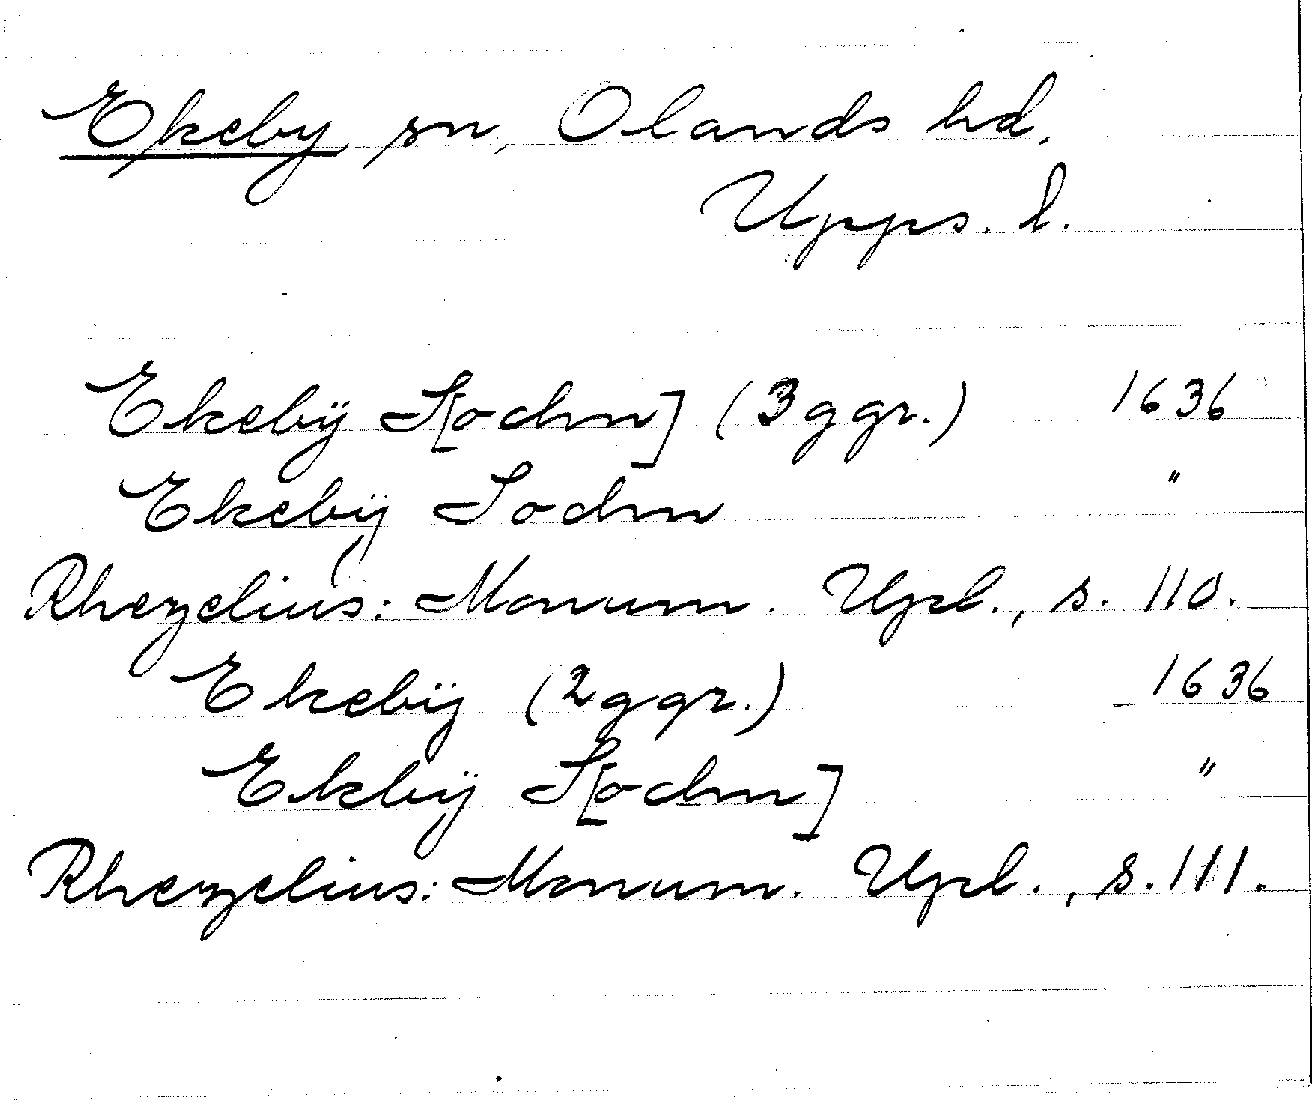 Ekeby sn, Olands hd.
Upps. l.
Ekebÿ S[ochn] (3 ggr.) 1636
Ekebÿ Sochn "
Rhezelius: Monum. Upl., s. 110.
Ekebÿ (2 ggr.) 1636
Ekbÿ S[ochn] "
Rhezelius: Monum. Upl., s. 111.